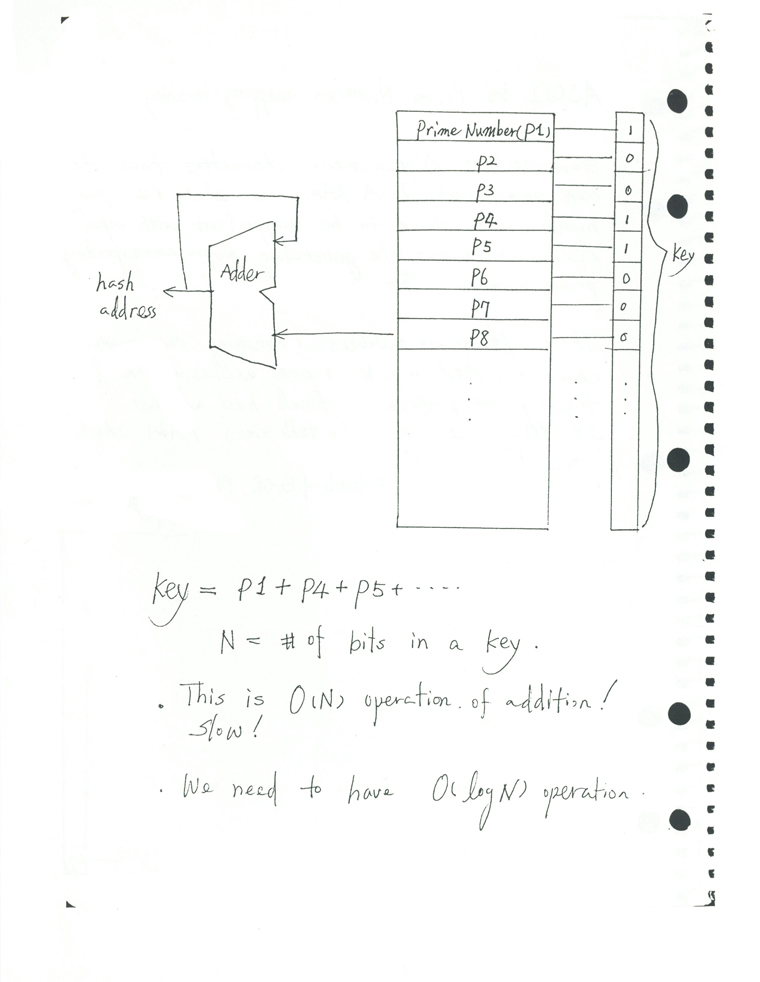 Prime Number(P1) 1
P2 0
P3 0
P4 1
P5 1
P6 0
P7 0
P8 0
key
Adder
hash
address
key = P1 + P4 + P5 + ....
N = # of bits in a key.
. This is O(N) operation. of addition!
slow!
. We need to have O(log N) operation.